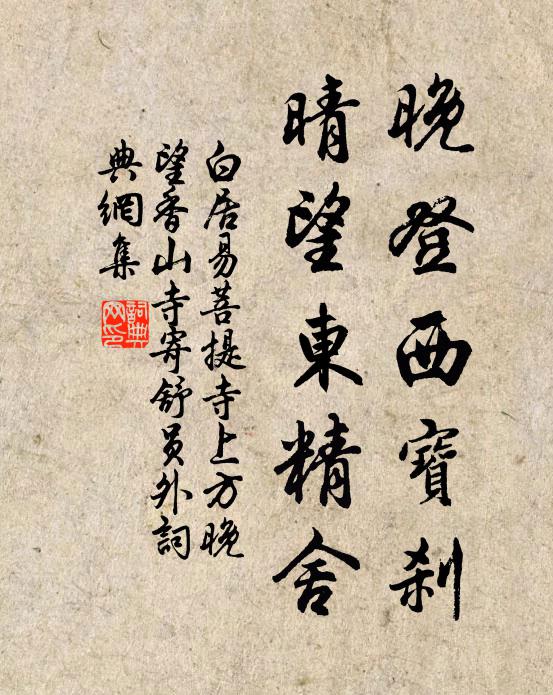 晚登西寶刹
晴望東精舍
白居易菩提寺上方晚
望香山寺寄舒员外詞
典網集
詞典网印